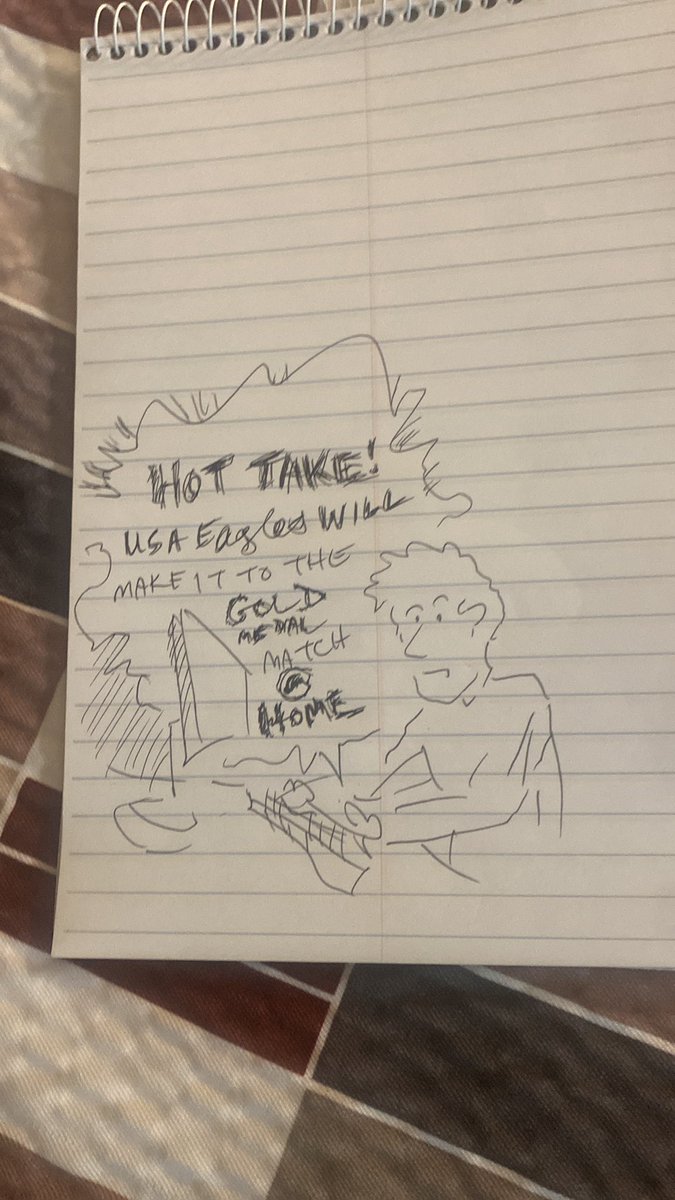 HOT TAKE!
USA Eagles WILL
MAKE IT TO THE
GOLD
MEDAL
MATCH
@
HOME